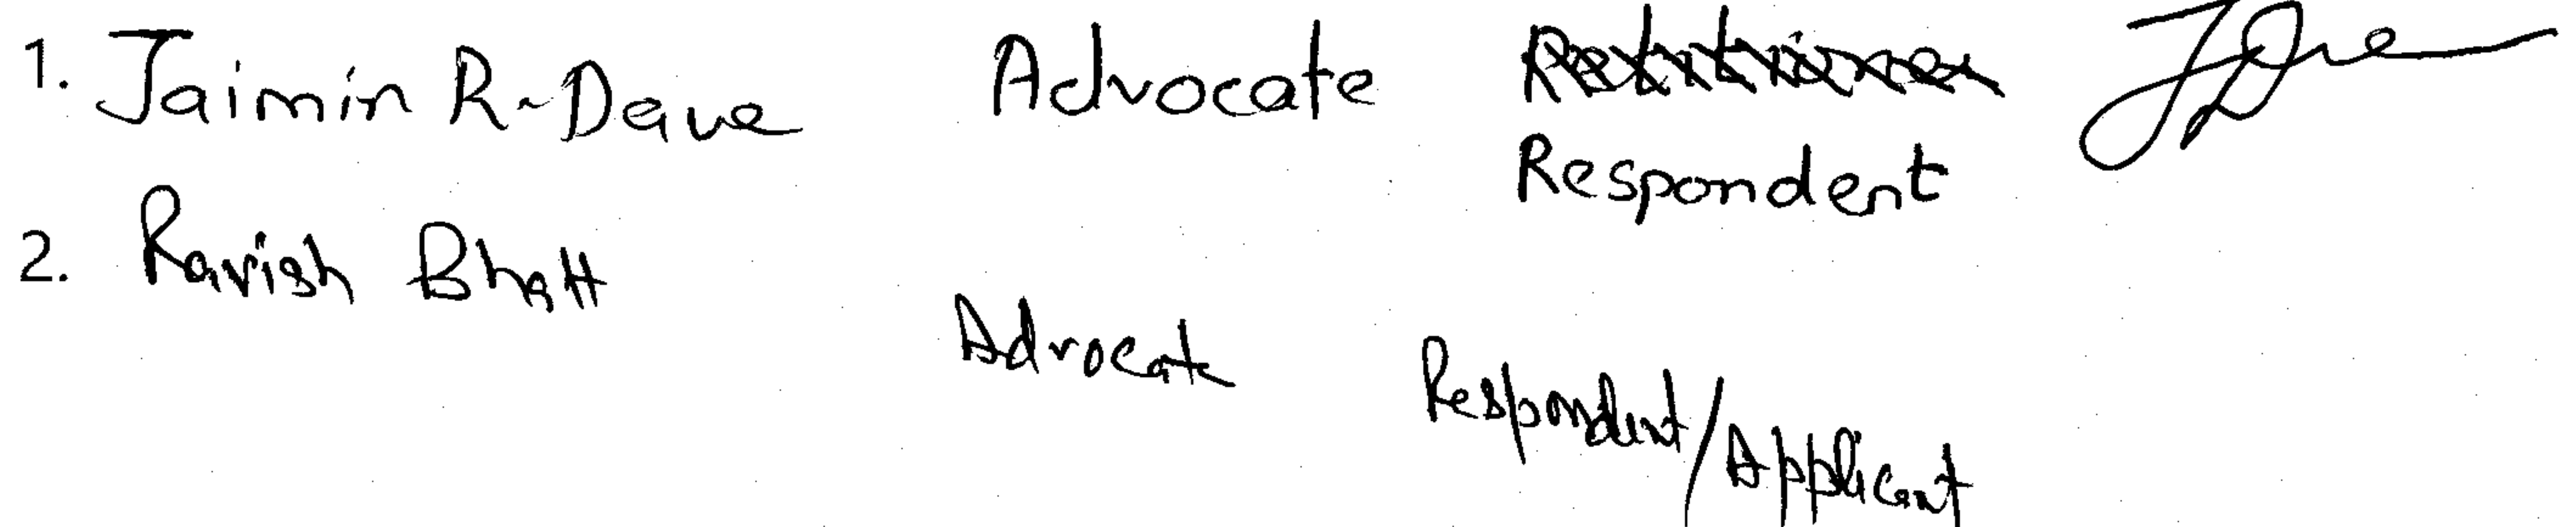 1. Jaimin R. Dave Advocate Respondent
2. Ravish Bhatt Advocate Respondent/Applicant